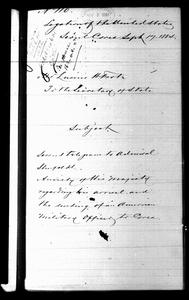 No 110.
Legation of the United States
Seoul Corea Sept 17. 1884.
Lucius H Foote
To the Secretary of State
Subject
Sends telegram to Admiral
Shufeldt.
Anxiety of His Majesty
regarding his arrival and
the sending of an American
Military Officer to Corea.